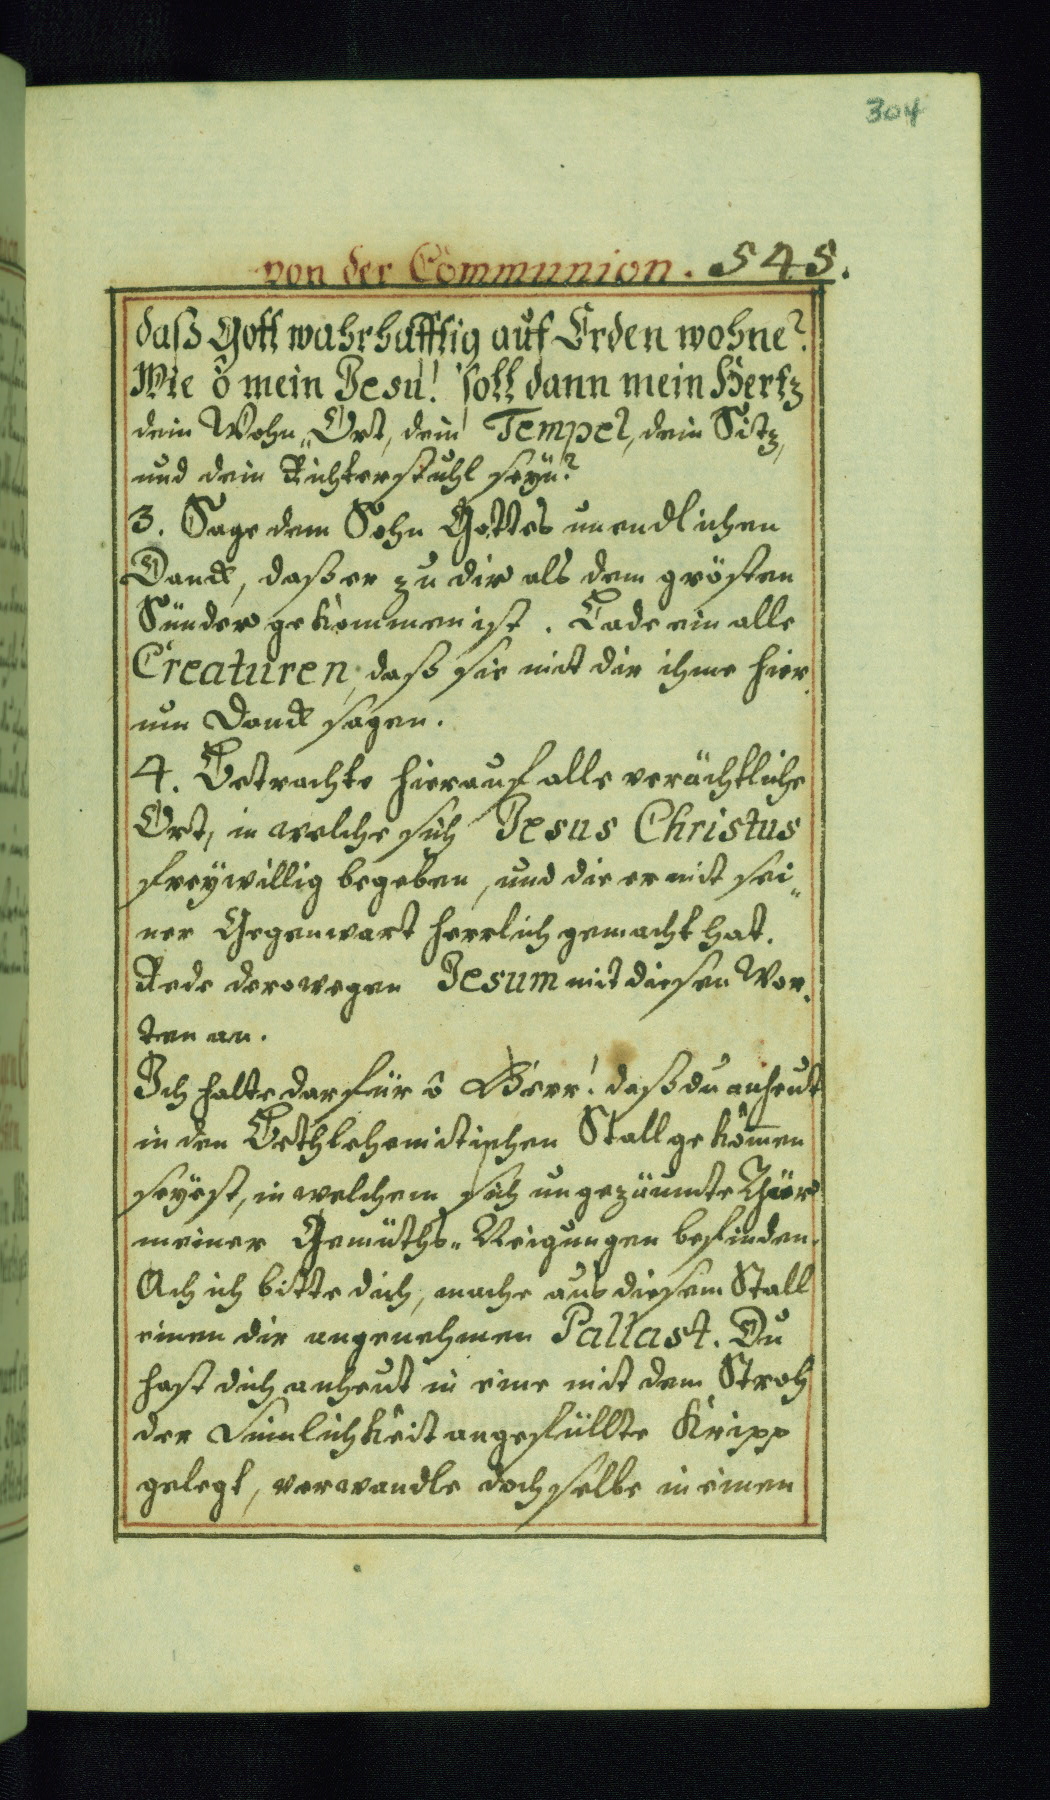 304
von der Communion. 545.
daß Gott wahrhafftig auf Erden wohne?
Wie ô mein Jesu! soll dann mein Hertz
dein Wohn„Ort, dein Tempel, dein Sitz,
und dein Richterstuhl seyn?
3. Sage dem Sohn Gottes unendlichen
Danck, daß er zu dir als dem grösten
Sünder gekommen ist. Lade ein alle
Creaturen, daß sie mit dir ihme hier„
um Danck sagen.
4. Betrachte hierauf alle verächtliche
Ort, in welche sich Jesus Christus
freywillig begeben, und die er mit sei„
ner Gegenwart herrlich gemacht hat.
Rede derowegen Jesum mit diesen Wor„
ten an.
Ich halte darfür ô Herr! daß du anheut
in den Bethlehemitischen Stall gekom̄en
seyest, in welchem sich ungezäumte Thier
meiner Gemüths„Neigungen befinden.
Ach ich bitte dich, mache aus diesem Stall
einen dir angenehmen Pallast. Du
hast dich anheut in eine mit dem Stroh
der Sinnlichkeit angefüllte Kripp
gelegt, verwandle doch selbe in einen